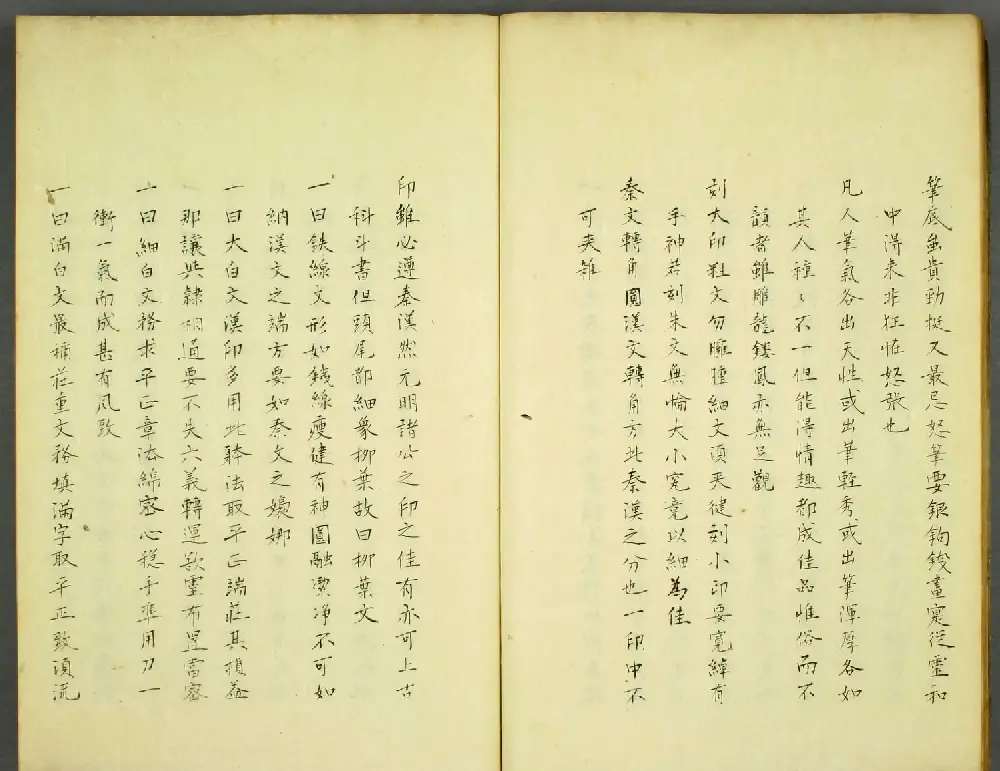 筆底虽貴勁挺又最忌怒筆要銀鉤鉄畫寔從靈和
中得来非狂怪怒張也
凡人筆氣各出天性或出筆輕秀或出筆渾厚各如
其人種々不一但能得情趣都成佳品惟俗而不
韻者雖雕龍鏤鳳亦無足觀
刻大印粗文勿臃腫細文須天健刻小印要寬綽有
手神若刻朱文無倫大小寬竟以細為佳
秦文轉角圓漢文轉角方此秦漢之分也一印中不
可夹雜
印雖必遵秦漢然元明諸公之印之佳有亦可上古
科斗書但頭尾都細象柳葉故曰柳葉文
一曰鉄線文形如鉄線瘦健有神圓融潔净不可如
納漢文之端方要如秦文之嬝娜
一曰大白文漢印多用此体法取平正端莊其損益
那讓與隸相通要不失六義轉運欲靈布置當密
一曰細白文務求平正章法綿密心穏手準用刀一
衝一氣而成甚有風致
一曰滿白文最補莊重文務填滿字取平正致須流